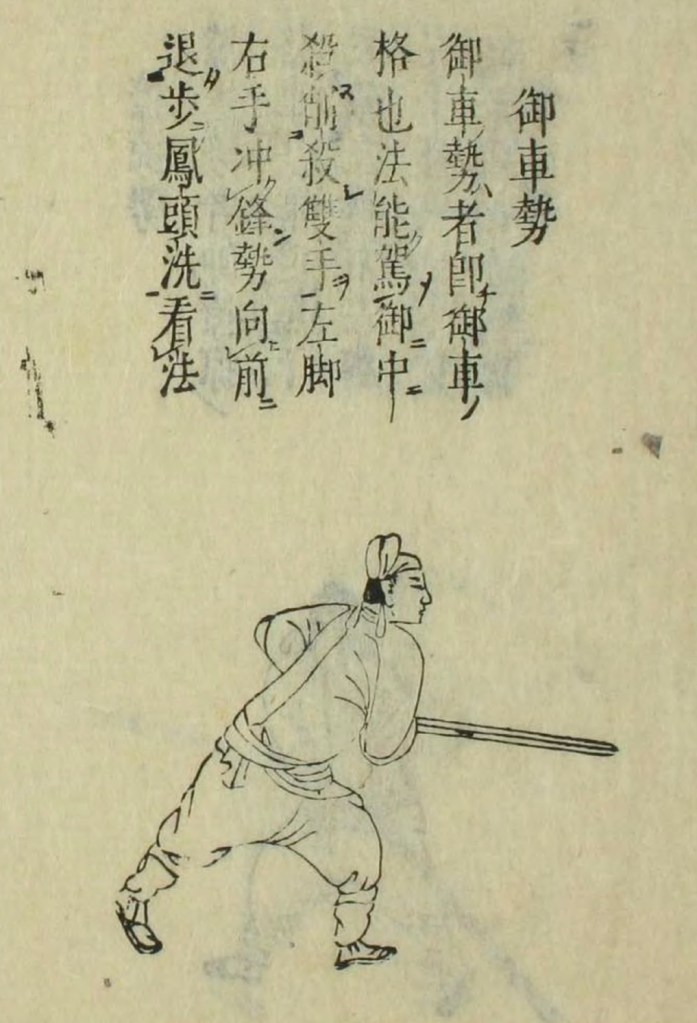 御車勢
御車勢者卽御車
格也法能駕御中
殺削殺雙手左脚
右手冲鋒勢向前
退步鳳頭洗看法